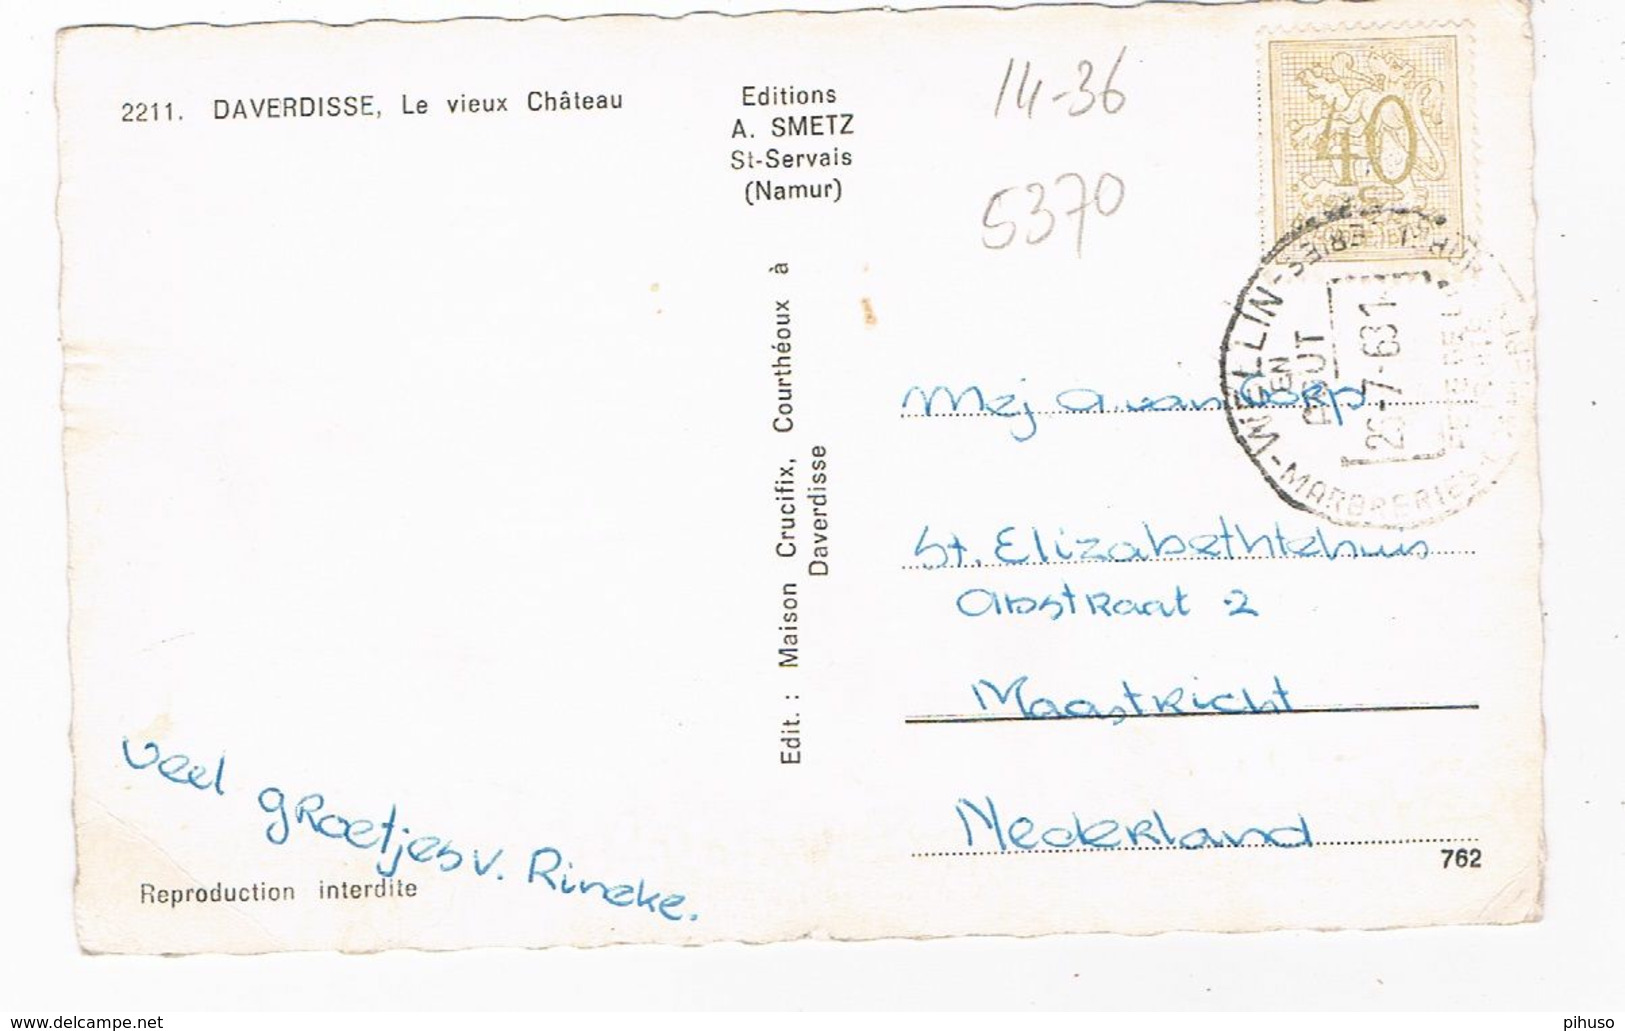 2211. DAVERDISSE, Le vieux Château
Editions
A. SMETZ
St-Servais
(Namur)
14-36
5370
40
WELLIN
EN
MARBRERIES
Edit. : Maison Crucifix, Courthéoux à
Daverdisse
Mej A. van Gorp
St. Elizabethtehuis
Abstraat 2
Maastricht
Nederland
762
veel groetjes v. Rineke.
Reproduction interdite
www.delcampe.net
pihuso